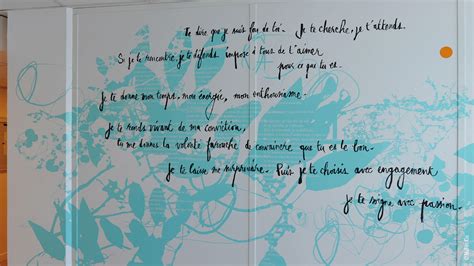 Te dire que je suis fou de toi. Je te cherche, je t'attends.
Si je te rencontre, je te défends impose à tous de t'aimer
pour ce que tu es.
Je te donne mon temps, mon énergie, mon enthousiasme.
Je te rends vivant de ma conviction,
tu me donnes la volonté farouche de convaincre que tu es le bon.
Je te laisse me surprendre. Puis je te choisis avec engagement
je te signe avec passion.